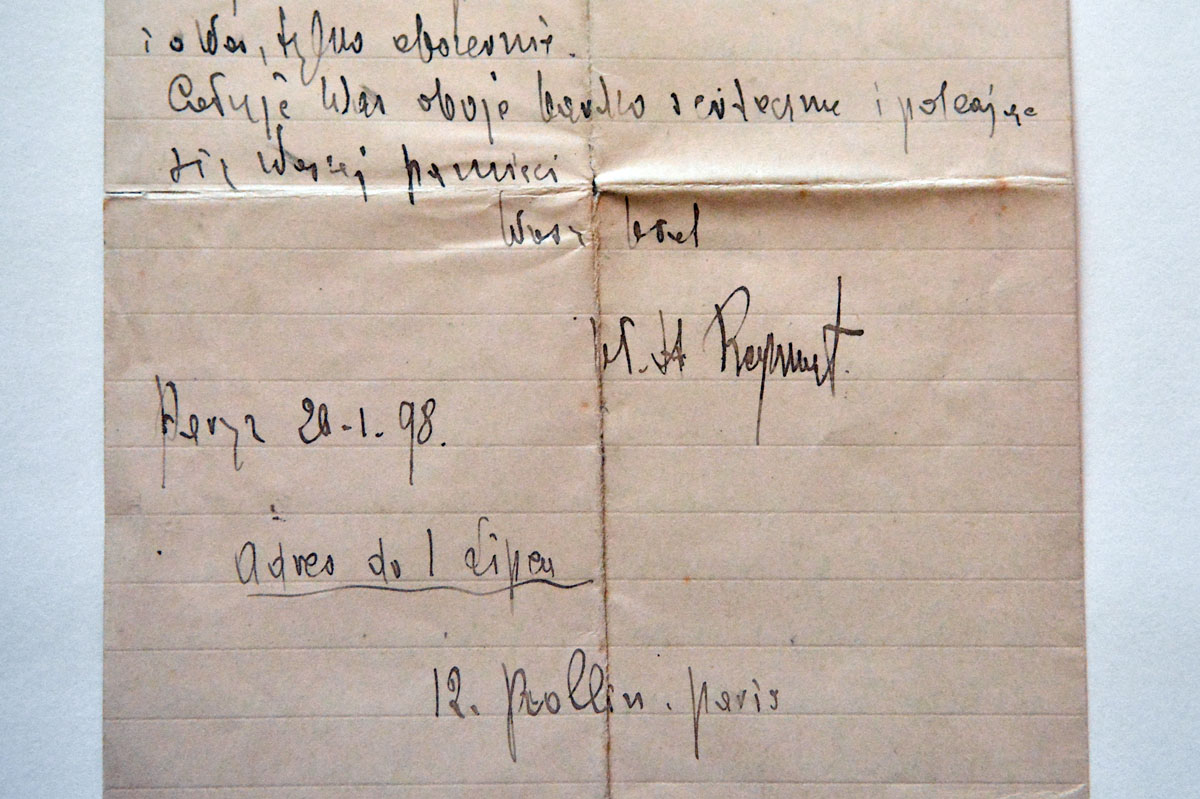 i o Was, tylko obojewnie.
Całuję Was oboje bardzo serdecznie i polecając
się Waszej pamięci
Wasz brat
Wł. St Reymont.
Paryż 20-1.98.
Adres do 1 Lipca
12. Rollin. Paris